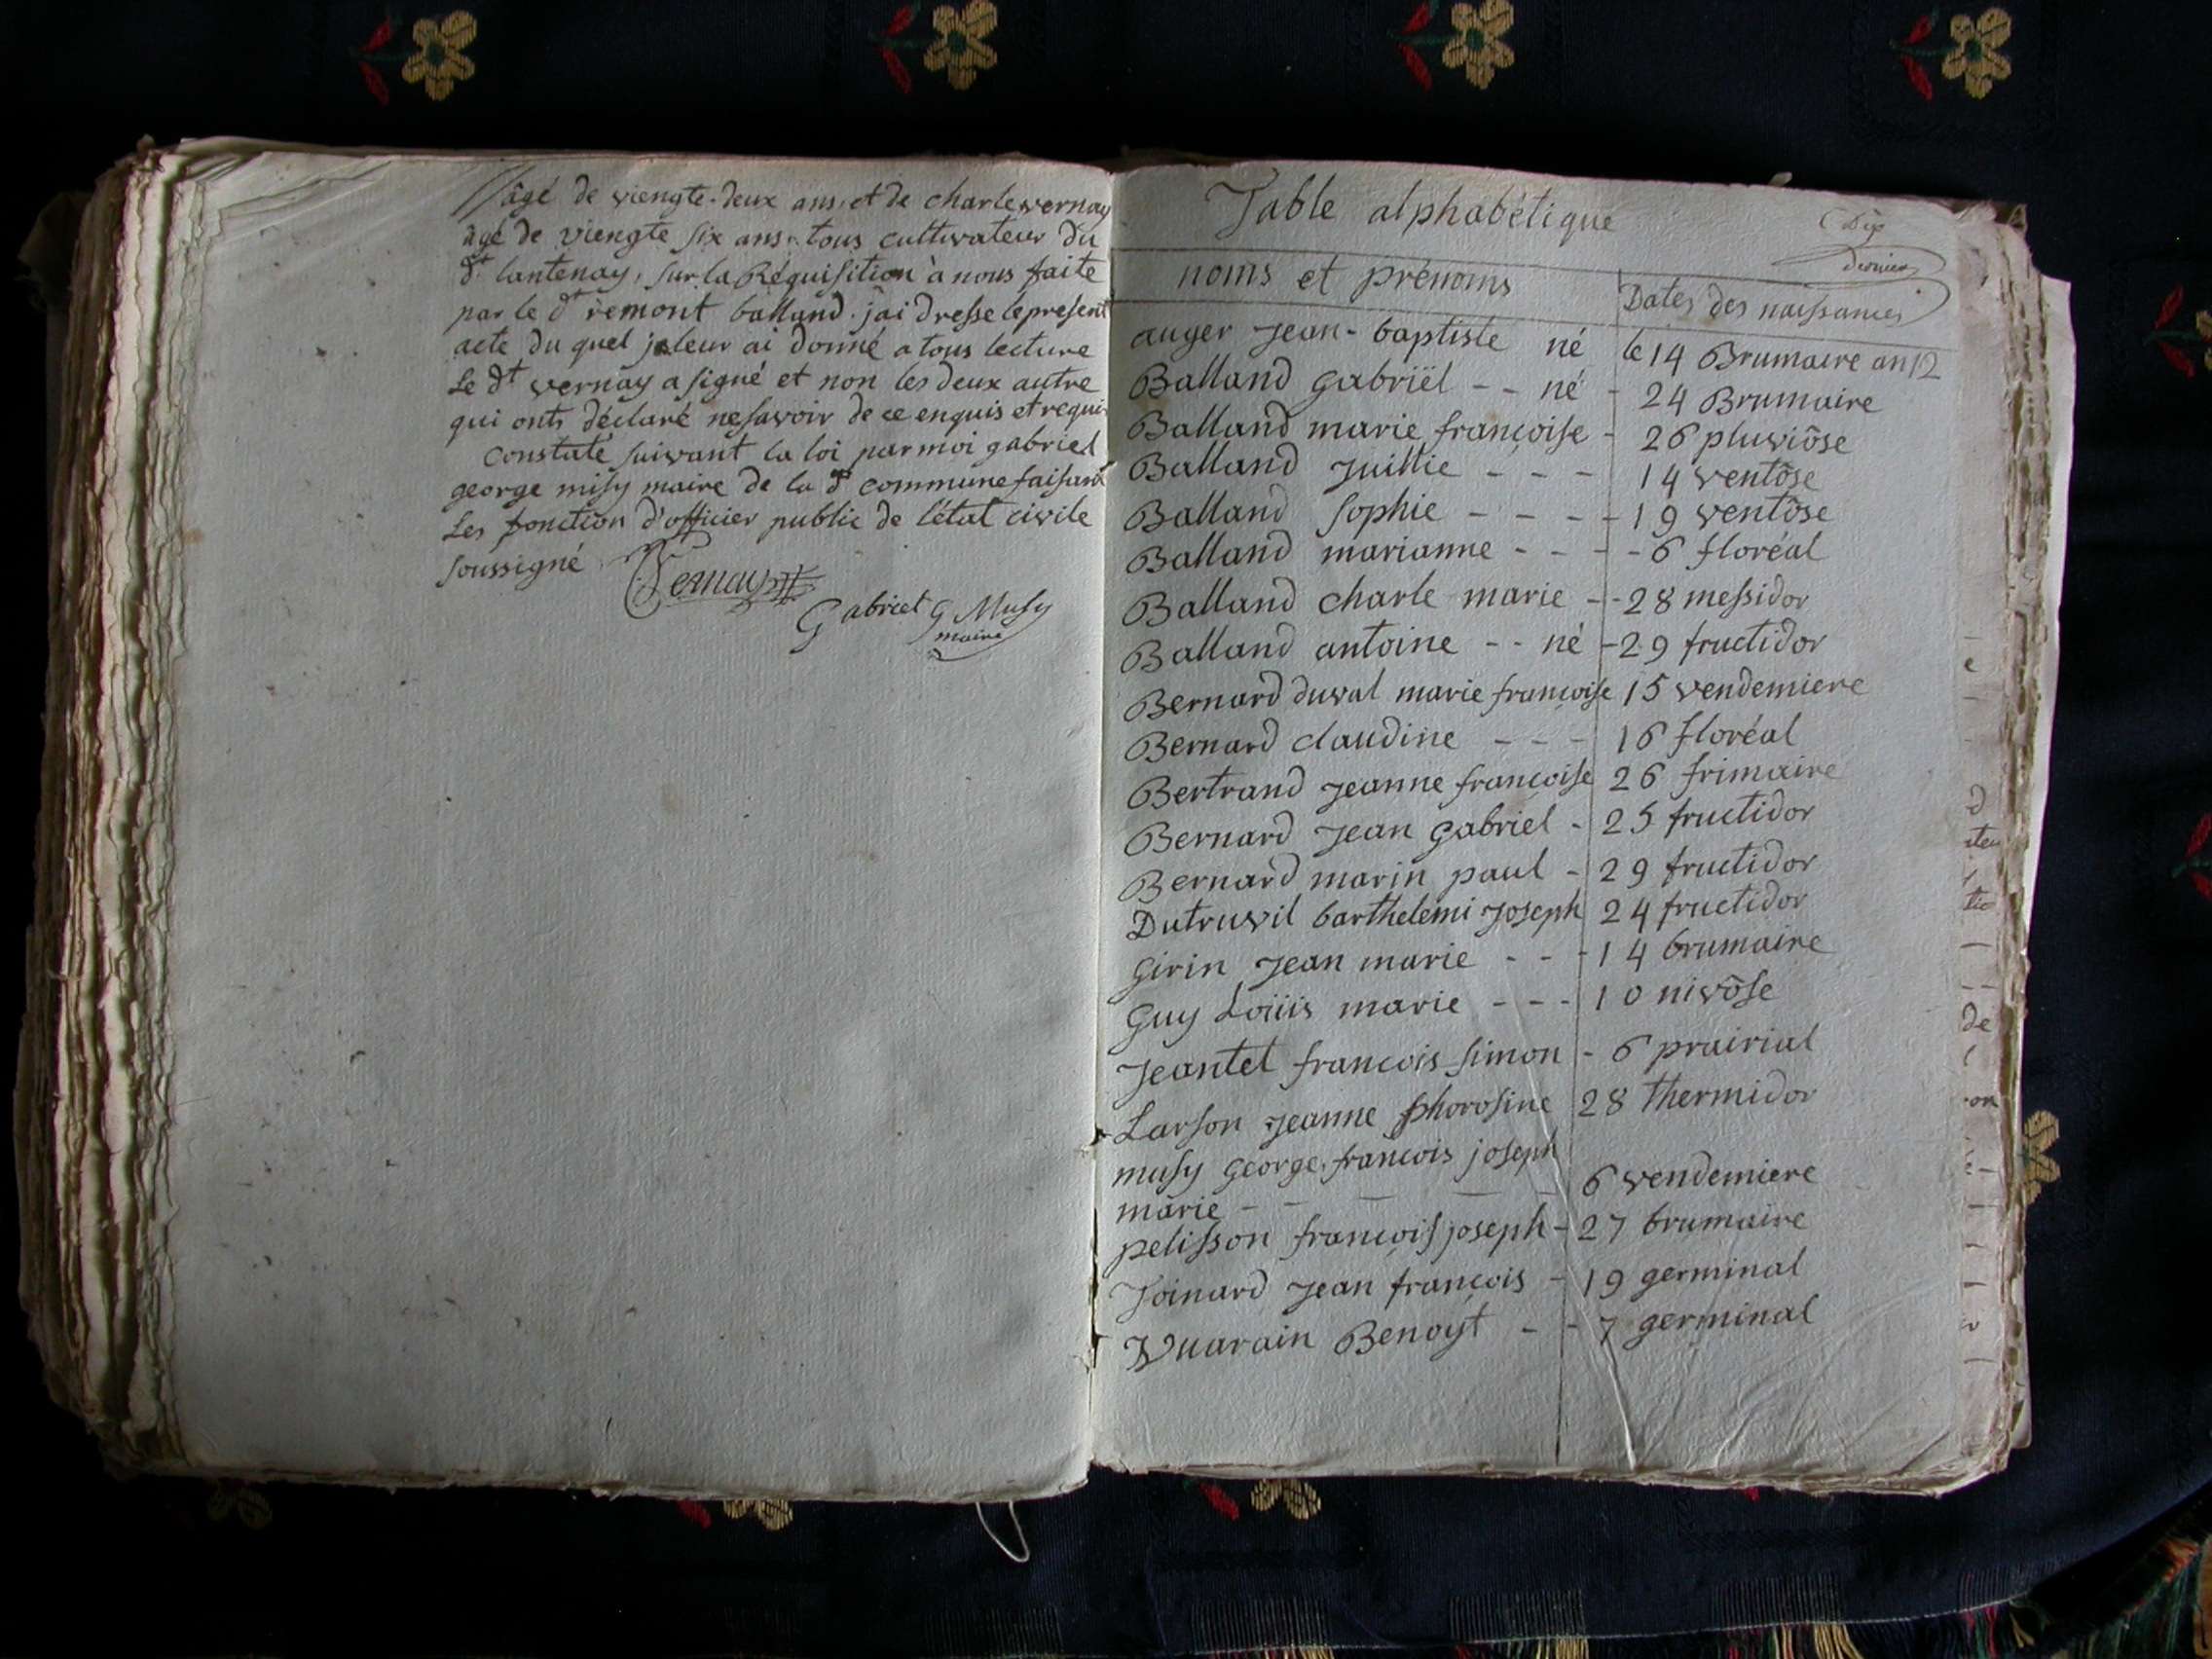 âgé de viengte-deux ans, et de charle vernay
âgé de viengte six ans, tous cultivateur du
dt lantenay, sur la Réquisition à nous faite
par le dt rémont balland j'ai dresse le present
acte du quel je leur ai donné a tous lecture
Le dt vernay a signé et non les deux autre
qui onts déclaré ne savoir de ce enquis et requis
constaté suivant la loi par moi gabriel
george musy maire de la dt commune faisant
Les fonction d'officier public de l'état civile
soussigné
Vernay
Gabriel G Musy
maire
Table alphabétique
Dix
dernier
noms et prénoms Dates des naissances
auger Jean-baptiste né le 14 Brumaire an 12
Balland Gabriël - - né - 24 Brumaire
Balland marie françoise - 26 pluviôse
Balland Juillie - - - 14 ventôse
Balland Sophie - - - - 19 ventôse
Balland marianne - - - - 6 floréal
Balland charle marie - - 28 messidor
Balland antoine - - né - 29 fructidor
Bernard duval marie françoise 15 vendemiere
Bernard claudine - - - 16 floréal
Bertrand Jeanne françoise 26 frimaire
Bernard Jean Gabriel - 25 fructidor
Bernard marin paul - 29 fructidor
Dutruvil barthelemi Joseph 24 fructidor
Girin Jean marie - - - 14 brumaire
Guy Loüis marie - - - 10 nivôse
Jeantet francois Simon - 6 prairial
Larson Jeanne phorosine 28 thermidor
musy George francois joseph
marie - - - - - 6 vendemiere
pelisson françois joseph - 27 brumaire
Joinard Jean françois - 19 germinal
Vuarain Benoyt - - 7 germinal